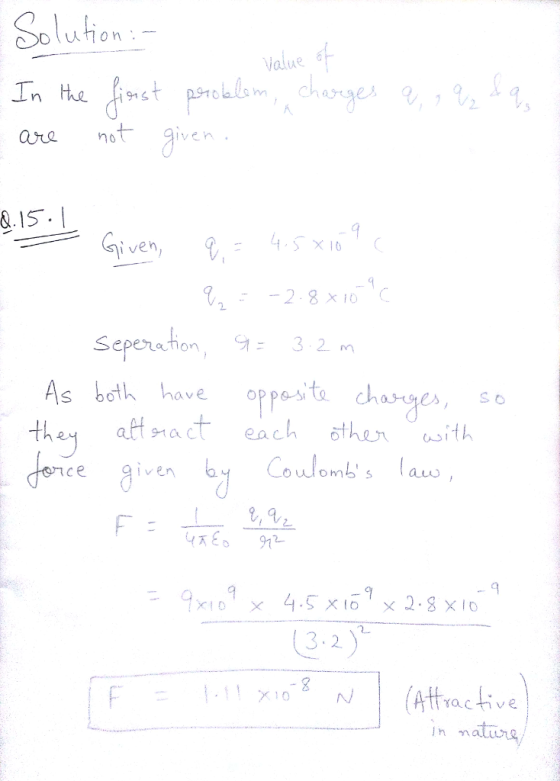 Solution :-
In the first problem, value of charges q₁, q₂ & q₃
are not given.
Q.15.1
Given, q₁ = 4.5 × 10⁻⁹ C
q₂ = -2.8 × 10⁻⁹ C
Seperation, r = 3.2 m
As both have opposite charges, so
they attract each other with
force given by Coulomb's law,
F = 1/4πε₀ q₁q₂/r²
= 9×10⁹ × 4.5 × 10⁻⁹ × 2.8 × 10⁻⁹ / (3.2)²
F = 1.11 × 10⁻⁸ N (Attractive
in nature)